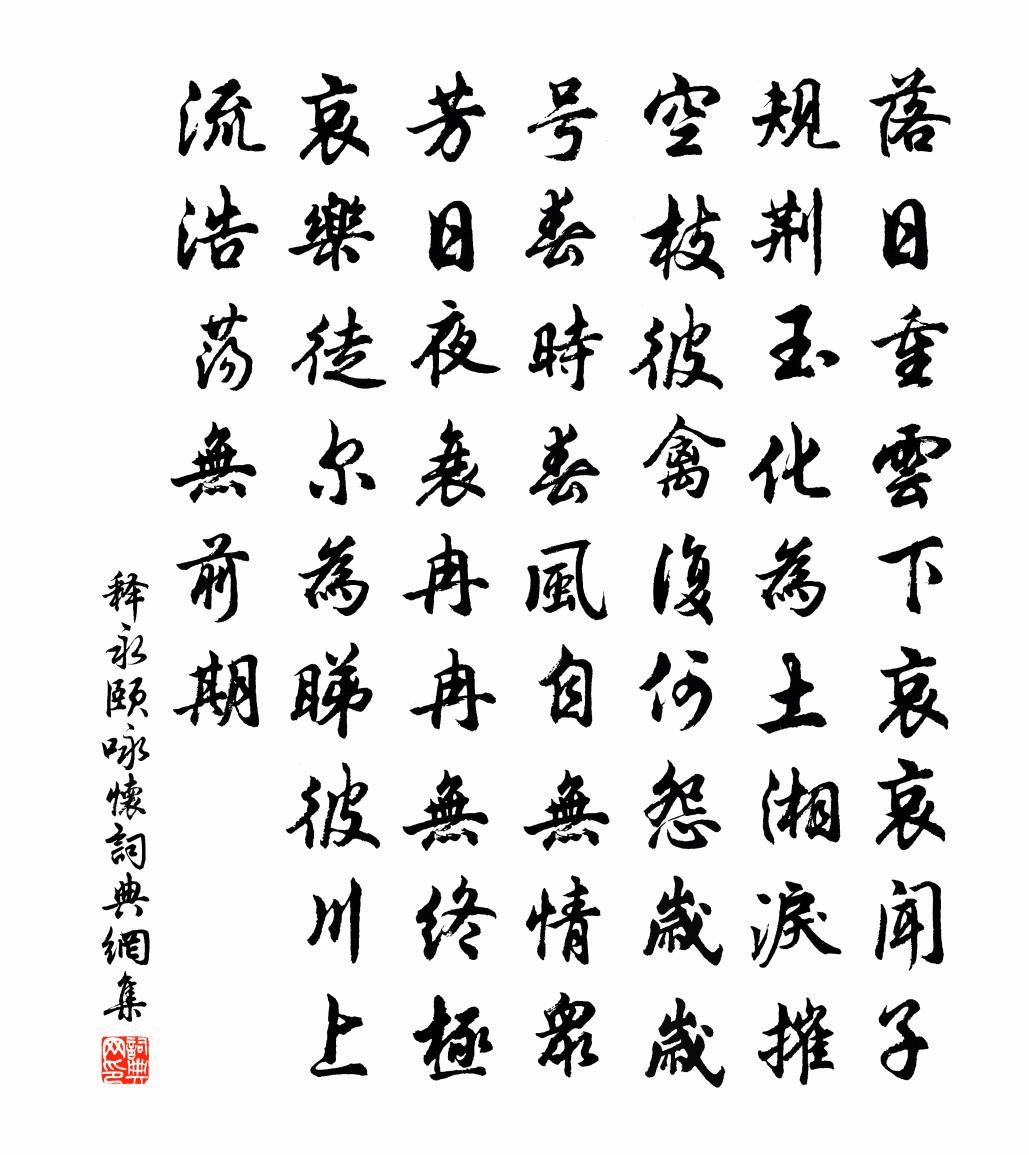 落日重雲下哀哀聞子
規荆玉化為土湘淚摧
空枝彼禽復何怨歲歲
号春時春風自無情衆
芳日夜衰冉冉無終極
哀樂徒尔為睇彼川上
流浩蕩無前期
释永頤咏懷詞典網集
詞典网印